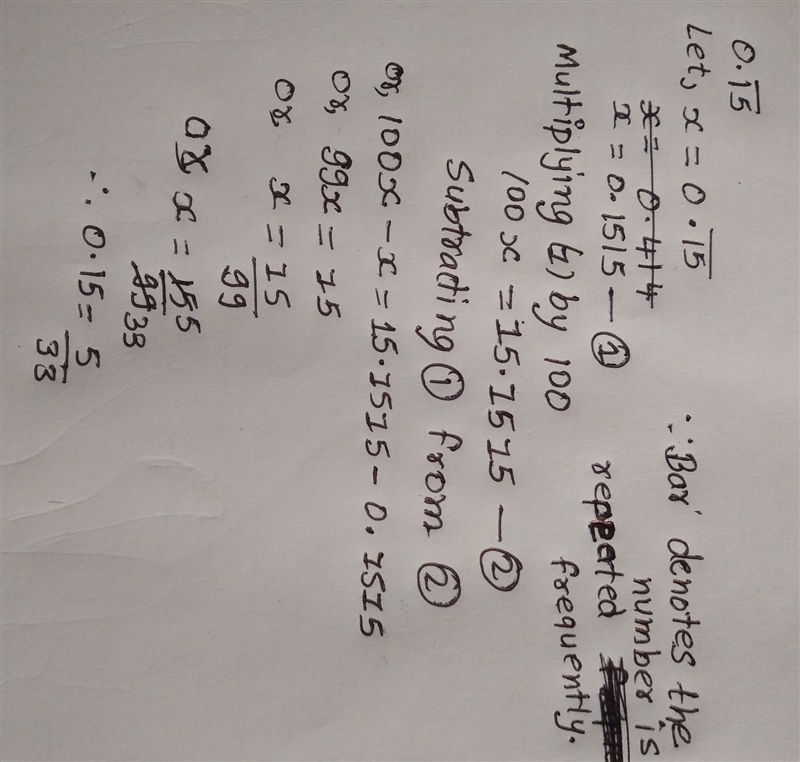 0.1̅5̅
Let, x = 0.1̅5̅
x = 0.414
x = 0.1515 — ①
∵ Bar denotes the
number is
repeated
frequently.
Multiplying (1) by 100
100x = 15.1515 — ②
Subtracting ① from ②
or, 100x - x = 15.1515 - 0.1515
or, 99x = 15
or x = 15/99
or x = 15 5/99 33
∴ 0.15 = 5/33